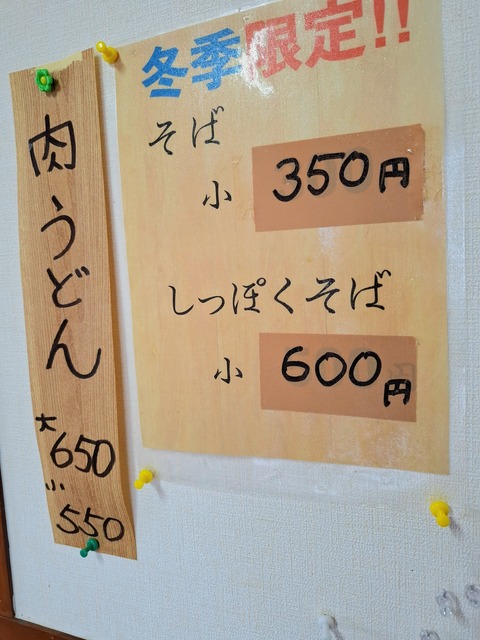 肉うどん
大 650
小 550
冬季限定!!
そば
小 350円
しっぽくそば
小 600円